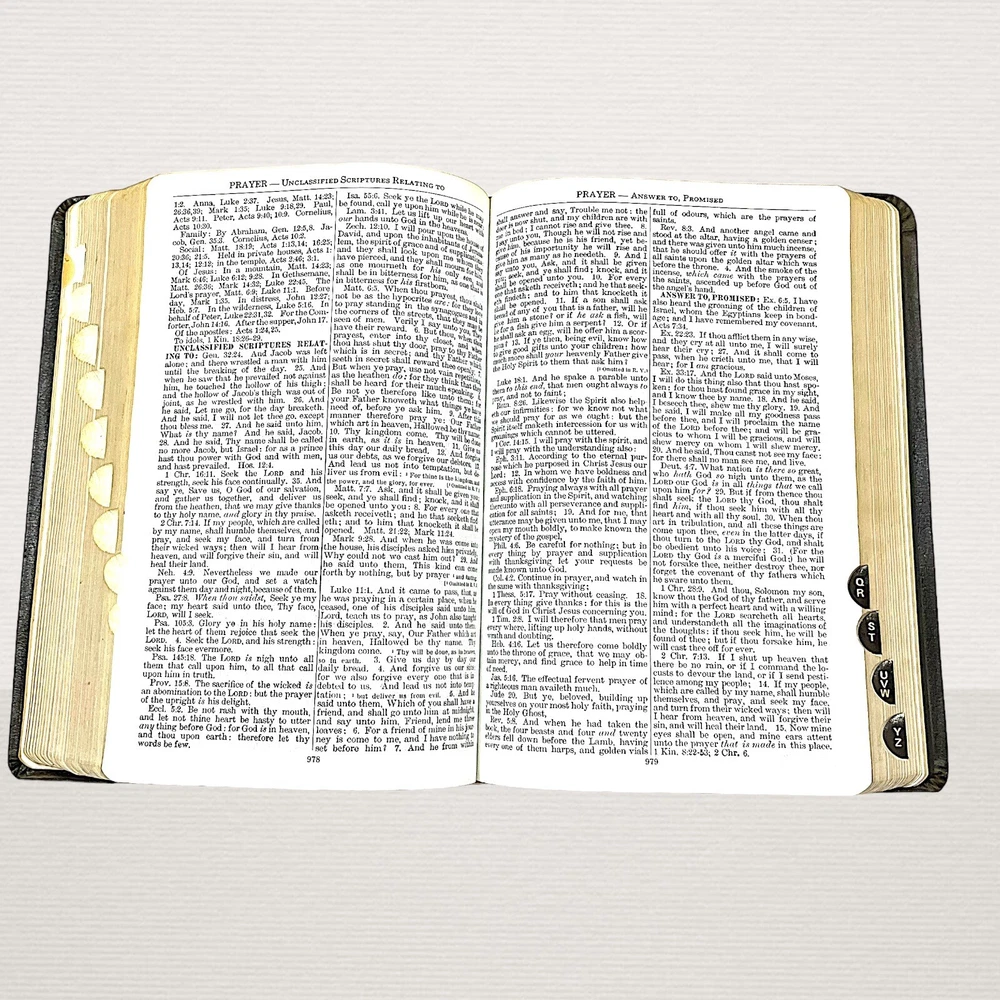 PRAYER — UNCLASSIFIED SCRIPTURES RELATING TO
1:2. Anna, Luke 2:37. Jesus, Matt. 14:23;
26:36,39; Mark 1:35; Luke 9:18,29. Paul,
Acts 9:11. Peter, Acts 9:40; 10:9. Cornelius,
Acts 10:30.
Family: By Abraham, Gen. 12:5,8. Ja-
cob, Gen. 35:3. Cornelius, Acts 10:2.
Social: Matt. 18:19; Acts 1:13,14; 16:25;
20:36; 21:5. Held in private houses, Acts 1:
13,14; 12:12; in the temple, Acts 2:46; 3:1.
Of Jesus: In a mountain, Matt. 14:23;
Mark 6:46; Luke 6:12; 9:28. In Gethsemane,
Matt. 26:36; Mark 14:32; Luke 22:45. The
Lord's prayer, Matt. 6:9; Luke 11:1. Before
day, Mark 1:35. In distress, John 12:27;
Heb. 5:7. In the wilderness, Luke 5:16. In
behalf of Peter, Luke 22:31,32. For the Com-
forter, John 14:16. After the supper, John 17.
Of the apostles: Acts 1:24,25.
To idols, 1 Kin. 18:26-29.
UNCLASSIFIED SCRIPTURES RELAT-
ING TO: Gen. 32:24. And Jacob was left
alone; and there wrestled a man with him
until the breaking of the day. 25. And
when he saw that he prevailed not against
him, he touched the hollow of his thigh;
and the hollow of Jacob's thigh was out of
joint, as he wrestled with him. 26. And
he said, Let me go, for the day breaketh.
And he said, I will not let thee go, except
thou bless me. 27. And he said unto him,
What is thy name? And he said, Jacob.
28. And he said, Thy name shall be called
no more Jacob, but Israel: for as a prince
hast thou power with God and with men,
and hast prevailed. Hos. 12:4.
1 Chr. 16:11. Seek the LORD and his
strength, seek his face continually. 35. And
say ye, Save us, O God of our salvation,
and gather us together, and deliver us
from the heathen, that we may give thanks
to thy holy name, and glory in thy praise.
2 Chr. 7:14. If my people, which are called
by my name, shall humble themselves, and
pray, and seek my face, and turn from
their wicked ways; then will I hear from
heaven, and will forgive their sin, and will
heal their land.
Neh. 4:9. Nevertheless we made our
prayer unto our God, and set a watch
against them day and night, because of them.
Psa. 27:8. When thou saidst, Seek ye my
face; my heart said unto thee, Thy face,
LORD, will I seek.
Psa. 105:3. Glory ye in his holy name:
let the heart of them rejoice that seek the
LORD. 4. Seek the LORD, and his strength:
seek his face evermore.
Psa. 145:18. The LORD is nigh unto all
them that call upon him, to all that call
upon him in truth.
Prov. 15:8. The sacrifice of the wicked is
an abomination to the LORD: but the prayer
of the upright is his delight.
Eccl. 5:2. Be not rash with thy mouth,
and let not thine heart be hasty to utter
any thing before God: for God is in heaven,
and thou upon earth: therefore let thy
words be few.
Isa. 55:6. Seek ye the LORD while he may
be found, call ye upon him while he is near.
Lam. 3:41. Let us lift up our heart with
our hands unto God in the heavens.
Zech. 12:10. I will pour upon the house of
David, and upon the inhabitants of Jerusa-
lem, the spirit of grace and of supplications:
and they shall look upon me whom they
have pierced, and they shall mourn for him,
as one mourneth for his only son, and
shall be in bitterness for him, as one that is
in bitterness for his firstborn.
Matt. 6:5. When thou prayest, thou shalt
not be as the hypocrites are: for they love
to pray standing in the synagogues and in
the corners of the streets, that they may be
seen of men. Verily I say unto you, They
have their reward. 6. But thou, when thou
prayest, enter into thy closet, and when
thou hast shut thy door, pray to thy Father
which is in secret; and thy Father which
seeth in secret shall reward thee openly. 7.
But when ye pray, use not vain repetitions,
as the heathen do: for they think that they
shall be heard for their much speaking. 8.
Be not ye therefore like unto them: for
your Father knoweth what things ye have
need of, before ye ask him. 9. After this
manner therefore pray ye: Our Father
which art in heaven, Hallowed be thy name.
10. Thy kingdom come. Thy will be done
in earth, as it is in heaven. 11. Give us
this day our daily bread. 12. And forgive
us our debts, as we forgive our debtors. 13.
And lead us not into temptation, but de-
liver us from evil: ¹ For thine is the kingdom, and
the power, and the glory, for ever.
Matt. 7:7. Ask, and it shall be given you;
seek, and ye shall find; knock, and it shall
be opened unto you: 8. For every one that
asketh receiveth; and he that seeketh find-
eth; and to him that knocketh it shall be
opened. Matt. 21:22; Mark 11:24.
Mark 9:28. And when he was come into
the house, his disciples asked him privately,
Why could not we cast him out? 29. And
he said unto them, This kind can come
forth by nothing, but by prayer ¹ and fasting.
[¹ Omitted in R. V.]
Luke 11:1. And it came to pass, that, as
he was praying in a certain place, when he
ceased, one of his disciples said unto him,
Lord, teach us to pray, as John also taught
his disciples. 2. And he said unto them,
When ye pray, say, Our Father which art
in heaven, Hallowed be thy name. Thy
kingdom come. ¹ Thy will be done, as in heaven,
so in earth. 3. Give us day by day our
daily bread. 4. And forgive us our sins;
for we also forgive every one that is in-
debted to us. And lead us not into temp-
tation; ¹ but deliver us from evil. 5. And he
said unto them, Which of you shall have a
friend, and shall go unto him at midnight,
and say unto him, Friend, lend me three
loaves; 6. For a friend of mine in his jour-
ney is come to me, and I have nothing to
set before him? 7. And he from within
978
PRAYER — ANSWER TO, PROMISED
shall answer and say, Trouble me not: the
door is now shut, and my children are with
me in bed; I cannot rise and give thee. 8.
I say unto you, Though he will not rise and
give him, because he is his friend, yet be-
cause of his importunity he will rise and
give him as many as he needeth. 9. And I
say unto you, Ask, and it shall be given
you; seek, and ye shall find; knock, and it
shall be opened unto you. 10. For every
one that asketh receiveth; and he that seek-
eth findeth; and to him that knocketh it
shall be opened. 11. If a son shall ask
bread of any of you that is a father, will he
give him a stone? or if he ask a fish, will
he for a fish give him a serpent? 12. Or if
he shall ask an egg, will he offer him a scor-
pion? 13. If ye then, being evil, know how
to give good gifts unto your children; how
much more shall your heavenly Father give
the Holy Spirit to them that ask him?
[¹ Omitted in R. V.]
Luke 18:1. And he spake a parable unto
them to this end, that men ought always to
pray, and not to faint;
Rom. 8:26. Likewise the Spirit also help-
eth our infirmities: for we know not what
we should pray for as we ought: but the
Spirit itself maketh intercession for us with
groanings which cannot be uttered.
1 Cor. 14:15. I will pray with the spirit, and
I will pray with the understanding also:
Eph. 3:11. According to the eternal pur-
pose which he purposed in Christ Jesus our
Lord: 12. In whom we have boldness and
access with confidence by the faith of him.
Eph. 6:18. Praying always with all prayer
and supplication in the Spirit, and watching
thereunto with all perseverance and suppli-
cation for all saints; 19. And for me, that
utterance may be given unto me, that I may
open my mouth boldly, to make known the
mystery of the gospel,
Phil. 4:6. Be careful for nothing; but in
every thing by prayer and supplication
with thanksgiving let your requests be
made known unto God.
Col. 4:2. Continue in prayer, and watch in
the same with thanksgiving;
1 Thess. 5:17. Pray without ceasing. 18.
In every thing give thanks: for this is the
will of God in Christ Jesus concerning you.
1 Tim. 2:8. I will therefore that men pray
every where, lifting up holy hands, without
wrath and doubting.
Heb. 4:16. Let us therefore come boldly
unto the throne of grace, that we may ob-
tain mercy, and find grace to help in time
of need.
Jas. 5:16. The effectual fervent prayer of
a righteous man availeth much.
Jude 20. But ye, beloved, building up
yourselves on your most holy faith, praying
in the Holy Ghost,
Rev. 5:8. And when he had taken the
book, the four beasts and four and twenty
elders fell down before the Lamb, having
every one of them harps, and golden vials
full of odours, which are the prayers of
saints.
Rev. 8:3. And another angel came and
stood at the altar, having a golden censer;
and there was given unto him much incense,
that he should offer it with the prayers of
all saints upon the golden altar which was
before the throne. 4. And the smoke of the
incense, which came with the prayers of
the saints, ascended up before God out of
the angel's hand.
ANSWER TO, PROMISED: Ex. 6:5. I have
also heard the groaning of the children of
Israel, whom the Egyptians keep in bond-
age; and I have remembered my covenant.
Acts 7:34.
Ex. 22:23. If thou afflict them in any wise,
and they cry at all unto me, I will surely
hear their cry; 27. And it shall come to
pass, when he crieth unto me, that I will
hear; for I am gracious.
Ex. 33:17. And the LORD said unto Moses,
I will do this thing also that thou hast spo-
ken: for thou hast found grace in my sight,
and I know thee by name. 18. And he said,
I beseech thee, shew me thy glory. 19. And
he said, I will make all my goodness pass
before thee, and I will proclaim the name
of the LORD before thee; and will be gra-
cious to whom I will be gracious, and will
shew mercy on whom I will shew mercy.
20. And he said, Thou canst not see my face:
for there shall no man see me, and live.
Deut. 4:7. What nation is there so great,
who hath God so nigh unto them, as the
LORD our God is in all things that we call
upon him for? 29. But if from thence thou
shalt seek the LORD thy God, thou shalt
find him, if thou seek him with all thy
heart and with all thy soul. 30. When thou
art in tribulation, and all these things are
come upon thee, even in the latter days, if
thou turn to the LORD thy God, and shalt
be obedient unto his voice; 31. (For the
LORD thy God is a merciful God;) he will
not forsake thee, neither destroy thee, nor
forget the covenant of thy fathers which
he sware unto them.
1 Chr. 28:9. And thou, Solomon my son,
know thou the God of thy father, and serve
him with a perfect heart and with a willing
mind: for the LORD searcheth all hearts,
and understandeth all the imaginations of
the thoughts: if thou seek him, he will be
found of thee; but if thou forsake him, he
will cast thee off for ever.
2 Chr. 7:13. If I shut up heaven that
there be no rain, or if I command the lo-
custs to devour the land, or if I send pesti-
lence among my people; 14. If my people,
which are called by my name, shall humble
themselves, and pray, and seek my face,
and turn from their wicked ways; then will
I hear from heaven, and will forgive their
sin, and will heal their land. 15. Now mine
eyes shall be open, and mine ears attent
unto the prayer that is made in this place.
1 Kin. 8:22-53; 2 Chr. 6.
979
QR
ST
UVW
YZ